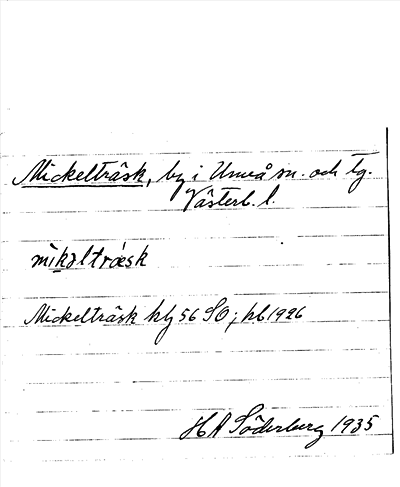 Mickelträsk, by i Umeå sn. och tg.
Västerb. l.
mikəltræsk
Mickelträsk kbg 56 SO; pb 1926
H A Söderberg 1935